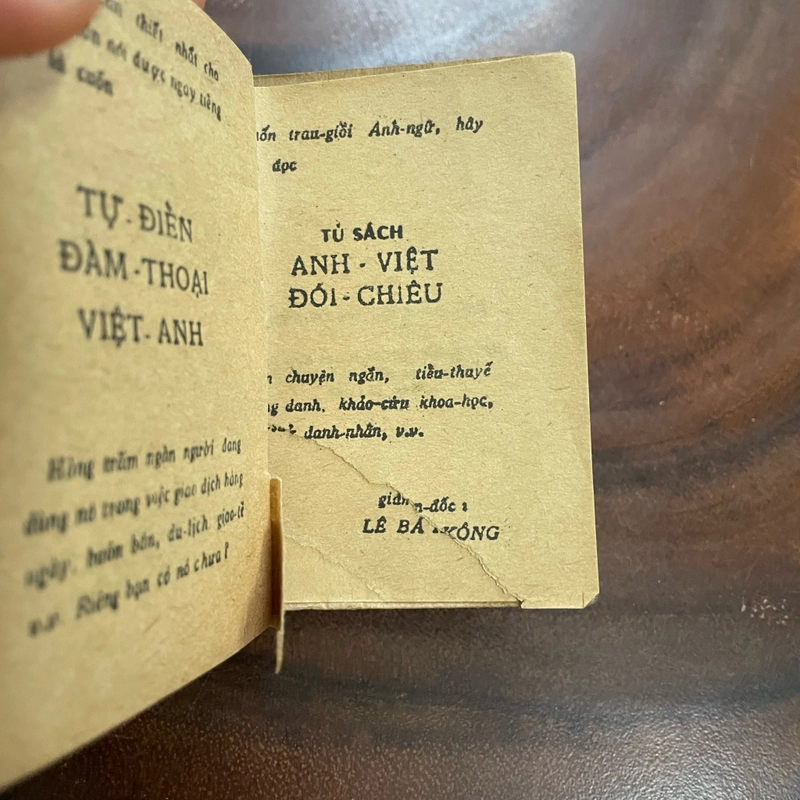 thiết nhất cho
nói được ngay tiếng
là cuốn
TỰ-ĐIỀN
ĐÀM-THOẠI
VIỆT-ANH
Hàng trăm ngàn người đang
dùng nó trong việc giao dịch hàng
ngày, buôn bán, du-lịch giao-tế
v.v. Riêng bạn có nó chưa?
trau-giồi Anh-ngữ, hãy
đọc
TỦ SÁCH
ANH - VIỆT
ĐỐI - CHIẾU
chuyện ngắn, tiều-thuyế
danh, khảo-cứu khoa-học,
danh-nhân, v.v.
giám-đốc :
LÊ BÁ KÔNG